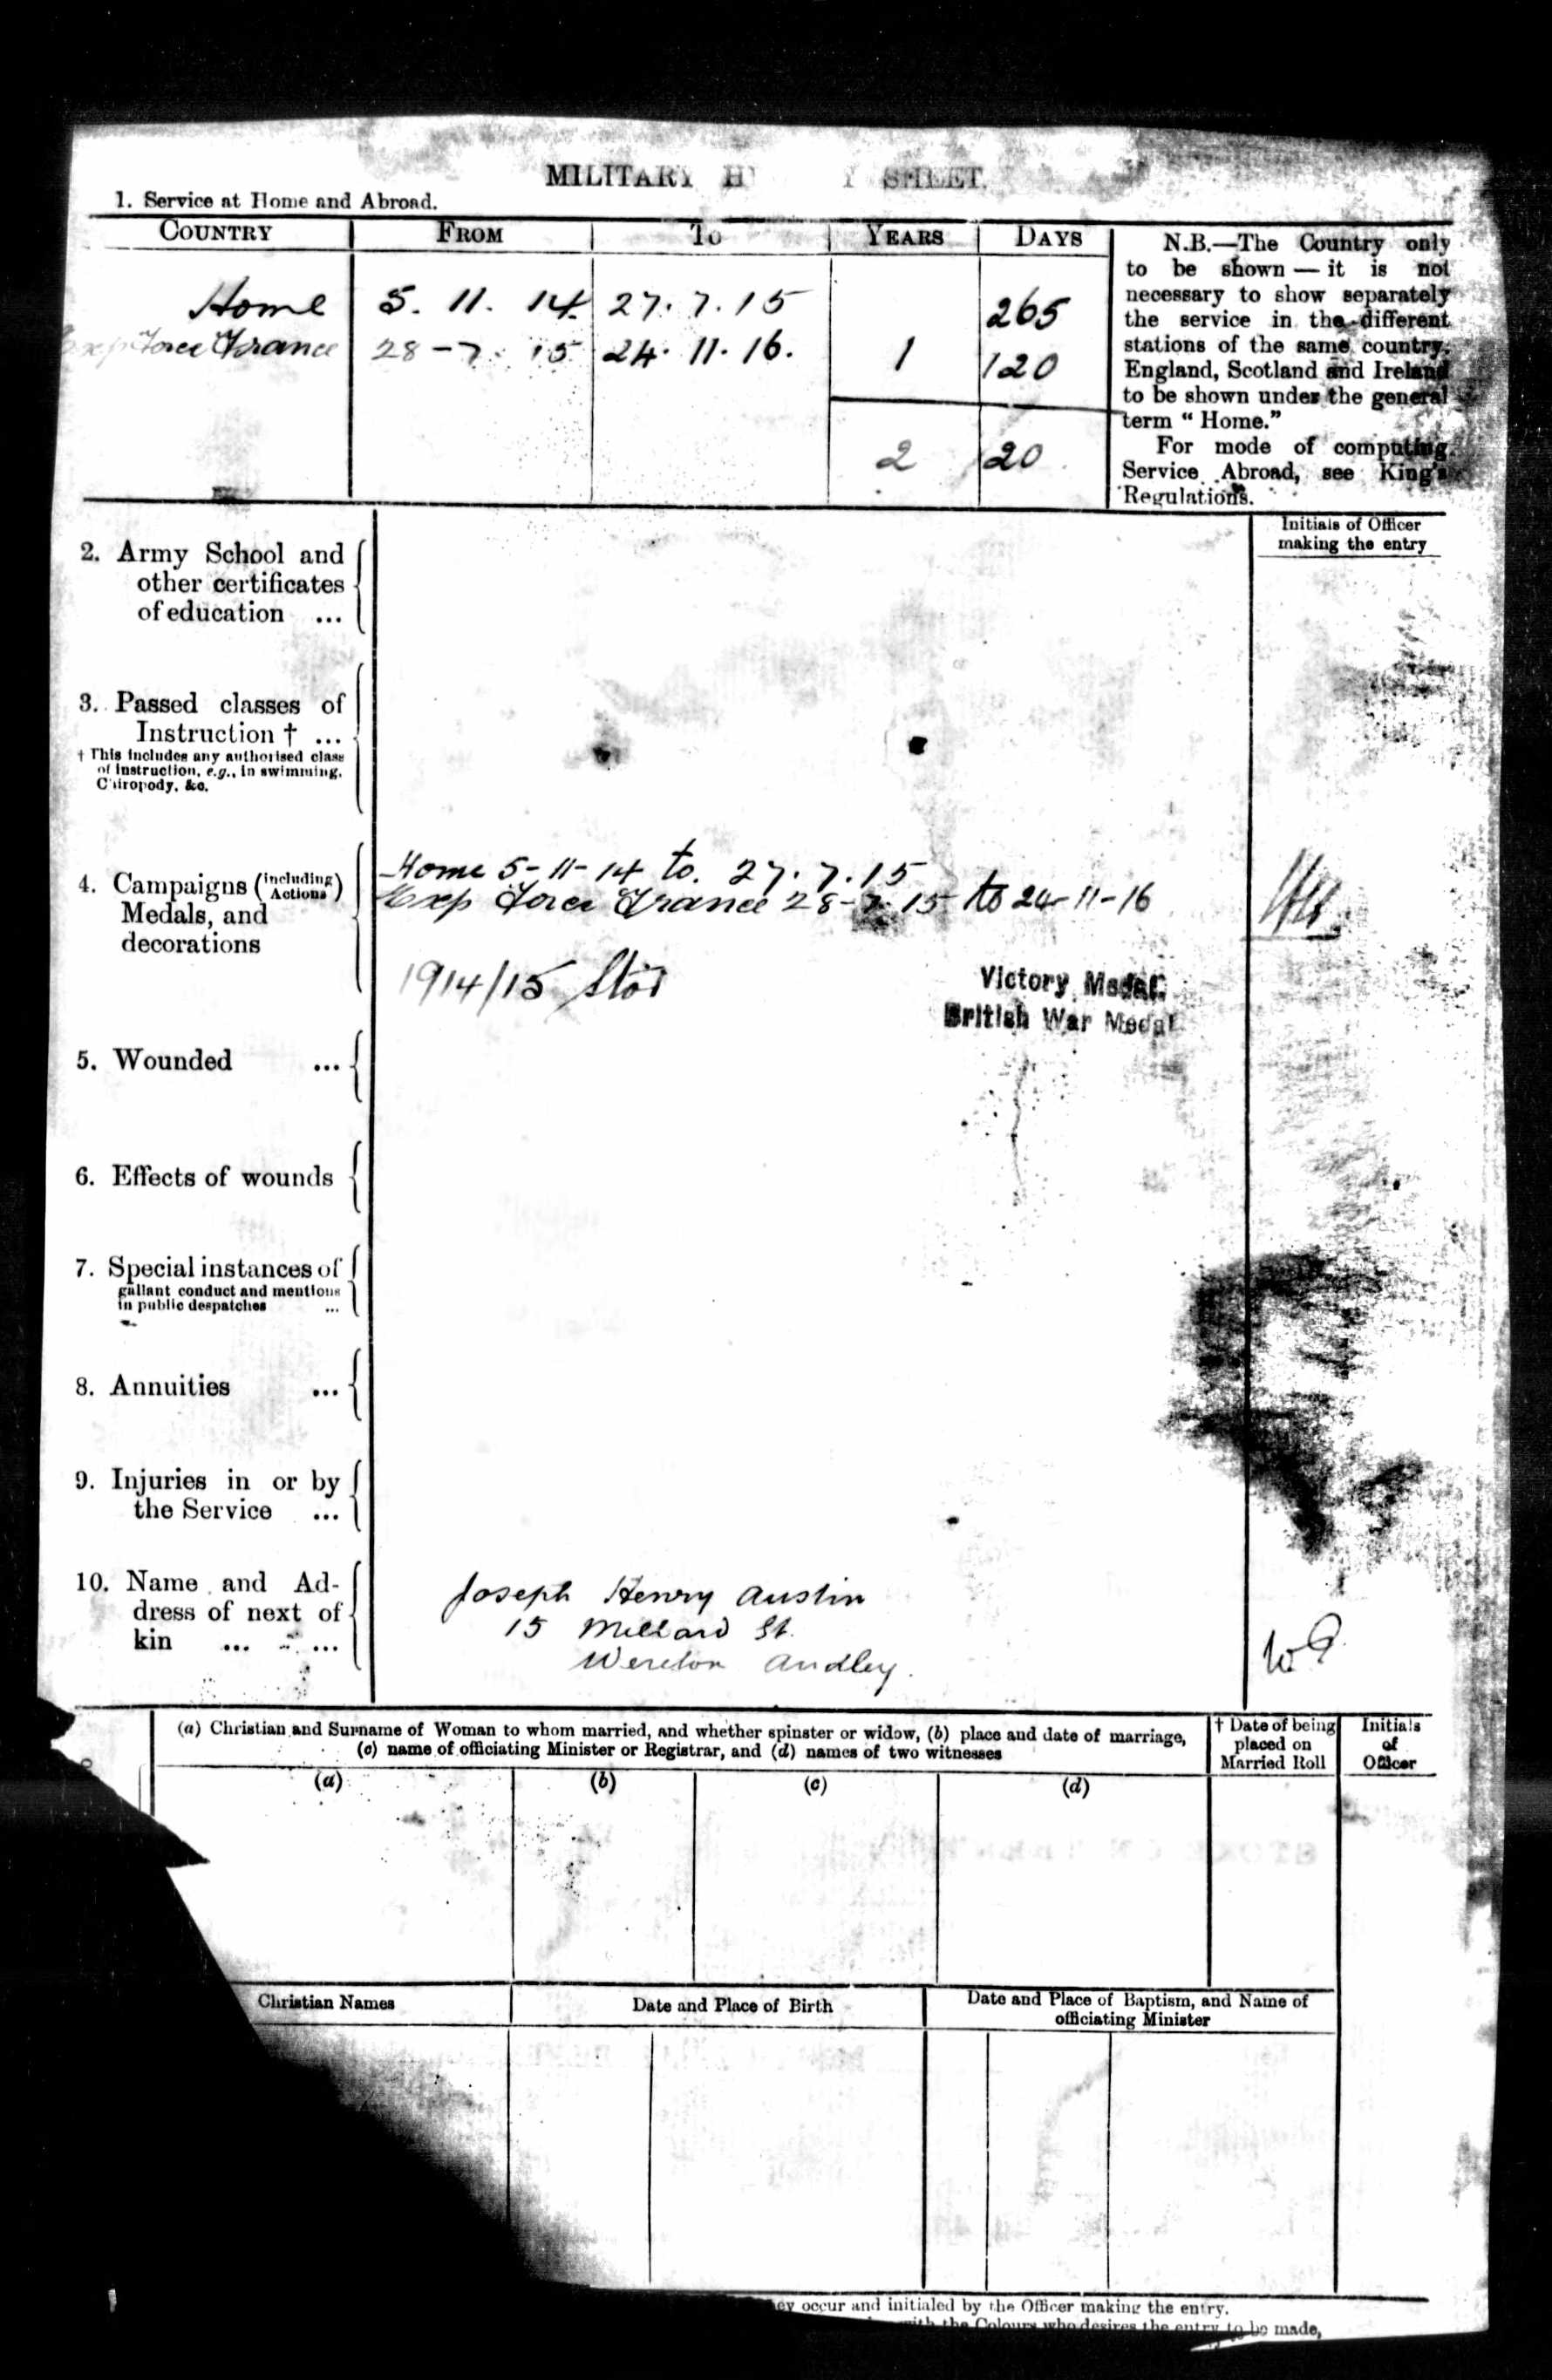 MILITARY H Y SHEET.
1. Service at Home and Abroad.
COUNTRY FROM To YEARS DAYS
Home 5. 11. 14. 27. 7. 15 265
Exp Force France 28-7. 15 24. 11. 16. 1 120
2 20
N.B.—The Country only
to be shown — it is not
necessary to show separately
the service in the different
stations of the same country.
England, Scotland and Ireland
to be shown under the general
term “ Home.”
For mode of computing
Service Abroad, see King's
Regulations.
Initials of Officer
making the entry
2. Army School and
other certificates
of education ...
3. Passed classes of
Instruction † ...
† This includes any authorised class
of instruction, e.g., in swimming,
Chiropody, &c.
4. Campaigns (including Actions)
Medals, and
decorations
Home 5-11-14 to. 27. 7. 15
Exp Force France 28-7-15 to 24-11-16
1914/15 Star
Victory Medal.
British War Medal
5. Wounded ...
6. Effects of wounds
7. Special instances of
gallant conduct and mentions
in public despatches ...
8. Annuities ...
9. Injuries in or by
the Service ...
10. Name and Ad-
dress of next of
kin ... ...
Joseph Henry Austin
15 Millard St.
Wereton Audley.
(a) Christian and Surname of Woman to whom married, and whether spinster or widow, (b) place and date of marriage,
(c) name of officiating Minister or Registrar, and (d) names of two witnesses
† Date of being
placed on
Married Roll
Initials
of
Officer
(a) (b) (c) (d)
Christian Names Date and Place of Birth
Date and Place of Baptism, and Name of
officiating Minister
ey occur and initialed by the Officer making the entry.
with the Colours who desires the entry to be made,